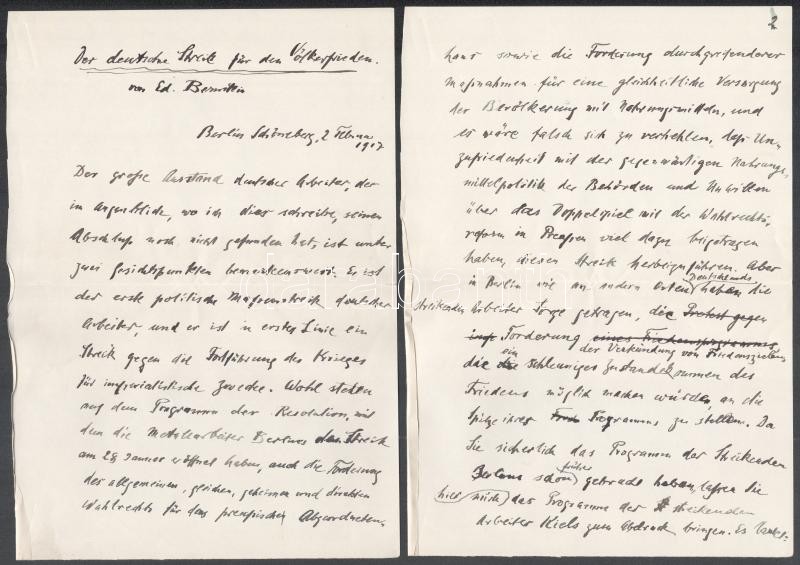 Der deutsche Streik für den Völkerfrieden.
von Ed. Bernstein
Berlin Schöneberg, 2 Februar
1917
Der große Ausstand deutscher Arbeiter, der
im Augenblicke, wo ich dies schreibe, seinen
Abschluß noch nicht gefunden hat, ist unter
zwei Gesichtspunkten bemerkenswert. Es ist
der erste politische Massenstreik deutscher
Arbeiter, und er ist in erster Linie ein
Streik gegen die Fortführung des Krieges
für imperialistische Zwecke. Wohl stehen
auf dem Programm der Resolution, mit
dem die Metallarbeiter Berlins den Streik
am 28 Januar eröffnet haben, auch die Forderung
des allgemeinen, gleichen, geheimen und direkten
Wahlrechts für das preußische Abgeordneten-
2
haus sowie die Forderung durchgreifenderer
Maßnahmen für eine gleichheitliche Versorgung
der Bevölkerung mit Nahrungsmitteln, und
es wäre falsch sich zu verhehlen, daß Un-
zufriedenheit mit der gegenwärtigen Nahrungs-
mittelpolitik der Behörden und Unwillen
über das Doppelspiel mit der Wahlrechts-
reform in Preußen viel dazu beigetragen
haben, diesen Streik herbeizuführen. Aber
in Berlin wie an andern Orten Deutschlands haben die
streikenden Arbeiter Sorge getragen, die Protest gegen
Forderung eines Friedensprogramms
der Verkündung von Friedenszielen
die ein schleuniges Zustandekommen des
Friedens möglich machen würden, an die
Spitze ihres Programms zu stellen. Da
Sie sicherlich das Programm der Streikenden
Berlins schon früher gebracht haben, lassen Sie
hier mich das Programm der streikenden
Arbeiter Kiels zum Abdruck bringen. Es